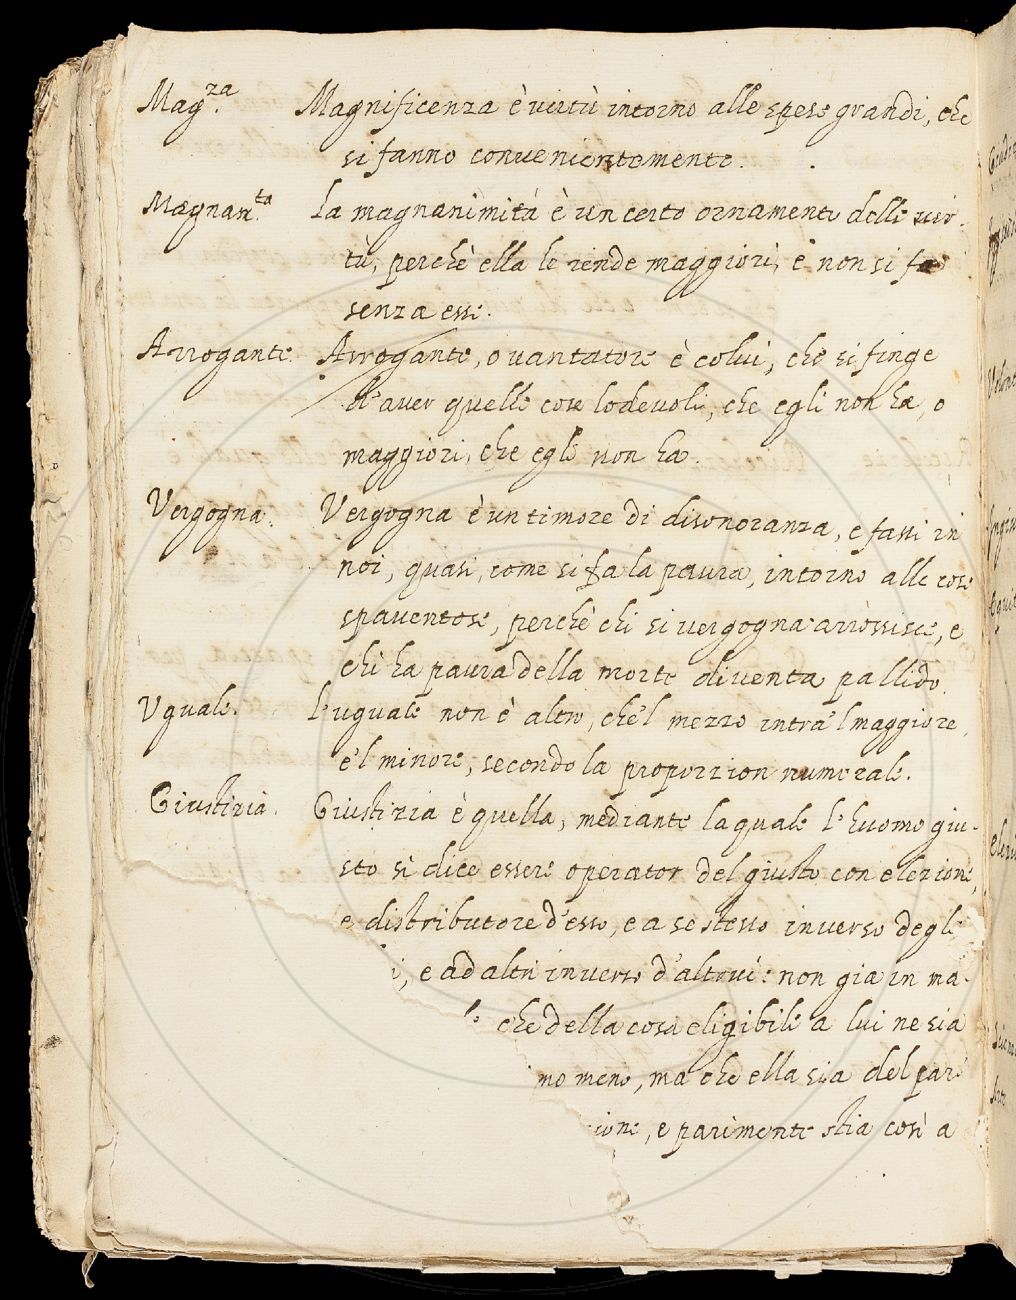 Mag.za Magnificenza è virtù intorno alle spese grandi, che
si fanno convenientemente.
Magnan.tà La magnanimità è un certo ornamento delle vir-
tù, perchè ella le rende maggiori, e non si fa
senza esse.
Arrogante. Arrogante, o vantatore è colui, che si finge
d'aver quelle cose lodevoli, che egli non ha, o
maggiori, che egli non ha.
Vergogna. Vergogna è un timore di disonoranza, e fassi in
noi, quasi, come si fa la paura, intorno alle cose
spaventose, perchè chi si vergogna arrossisce, e
chi ha paura della morte diventa pallido.
Uguale. L'uguale non è altro, che'l mezzo intra'l maggiore,
e'l minore, secondo la proporzion numerale.
Giustizia. Giustizia è quella, mediante la quale l'huomo giu-
sto si dice essere operator del giusto con elezione,
e distributore d'esso, e a se stesso inverso degli
i, e ad altri inverso d'altrui: non gia in ma-
che della cosa eligibile a lui ne sia
no meno, ma che ella sia del pari
ione, e parimente stia così a